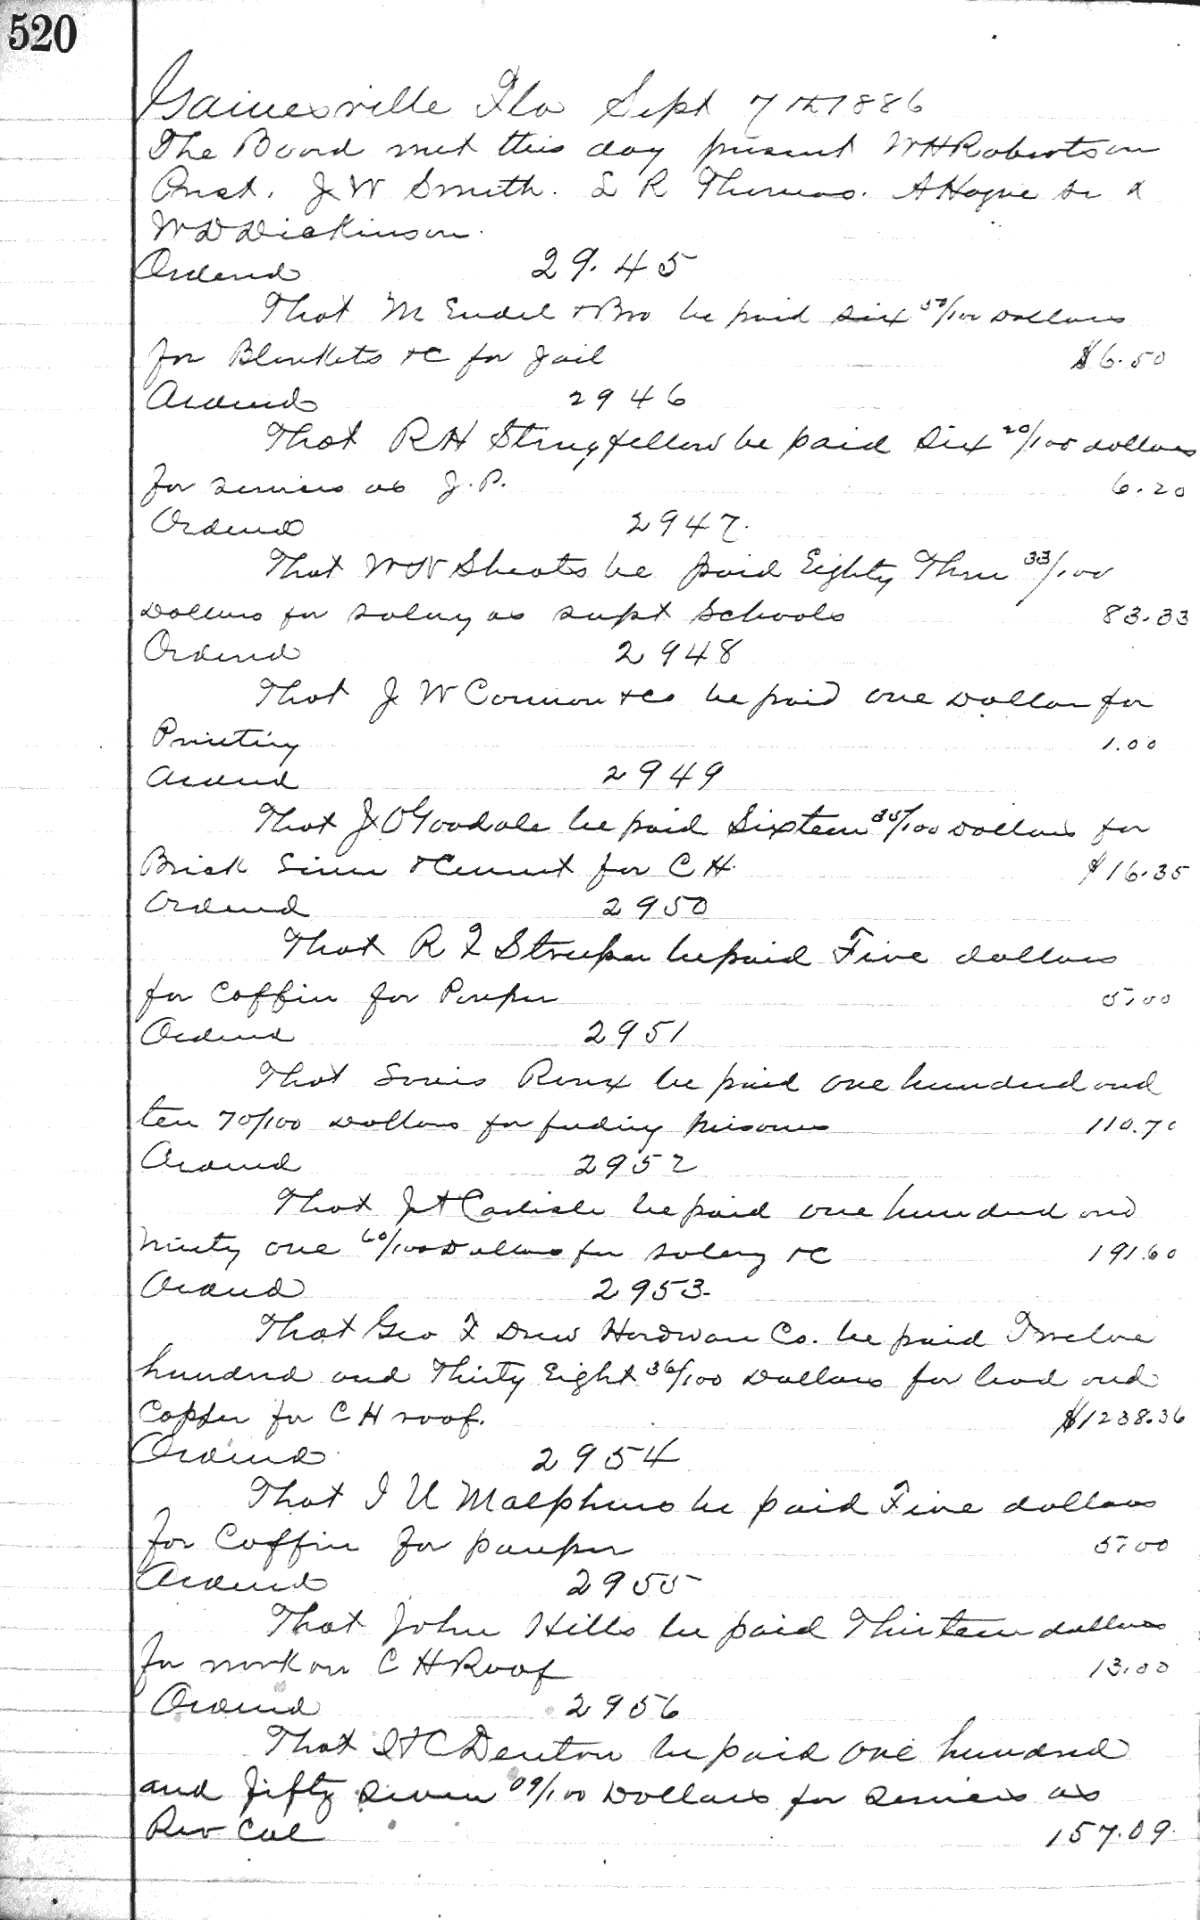 520
Gainesville Fla Sept 7th 1886
The Board met this day present W H Robertson
Prest. J W Smith. L R Thomas. A Hague Sr &
W D Dickinson.
Ordered 29.45
That M Endel & Bro be paid six 50/100 Dollars
for Blankets &C for Jail $6.50
Ordered 2946
That R H Stringfellow be paid Six 20/100 dollars
for services as J.P. 6.20
Ordered 2947.
That W N Sheats be paid Eighty Three 33/100
Dollars for salary as supt Schools 83.33
Ordered 2948
That J W Cannon & Co be paid one Dollar for
Printing 1.00
Ordered 2949
That J O Goodale be paid Sixteen 35/100 Dollars for
Brick Lime & Cement for C H. $16.35
Ordered 2950
That R F Streeper be paid Five dollars
for Coffin for Pauper 5.00
Ordered 2951
That Louis Roux be paid one hundred and
ten 70/100 Dollars for feeding prisoners 110.70
Ordered 2952
That J A Carlisle be paid one hundred and
Ninty one 60/100 Dollars for salary &C 191.60
Ordered 2953.
That Geo F Drew Hardware Co. be paid Twelve
hundred and Thirty Eight 36/100 Dollars for lead and
Copper for C H roof. $1238.36
Ordered 2954
That I U Malphurs be paid Five dollars
for Coffin for pauper 5.00
Ordered 2955
That John Hills be paid Thirteen dollars
for work on C H Roof 13.00
Ordered 2956
That H C Denton be paid one hundred
and fifty seven 09/100 Dollars for services as
Rev Col 157.09.